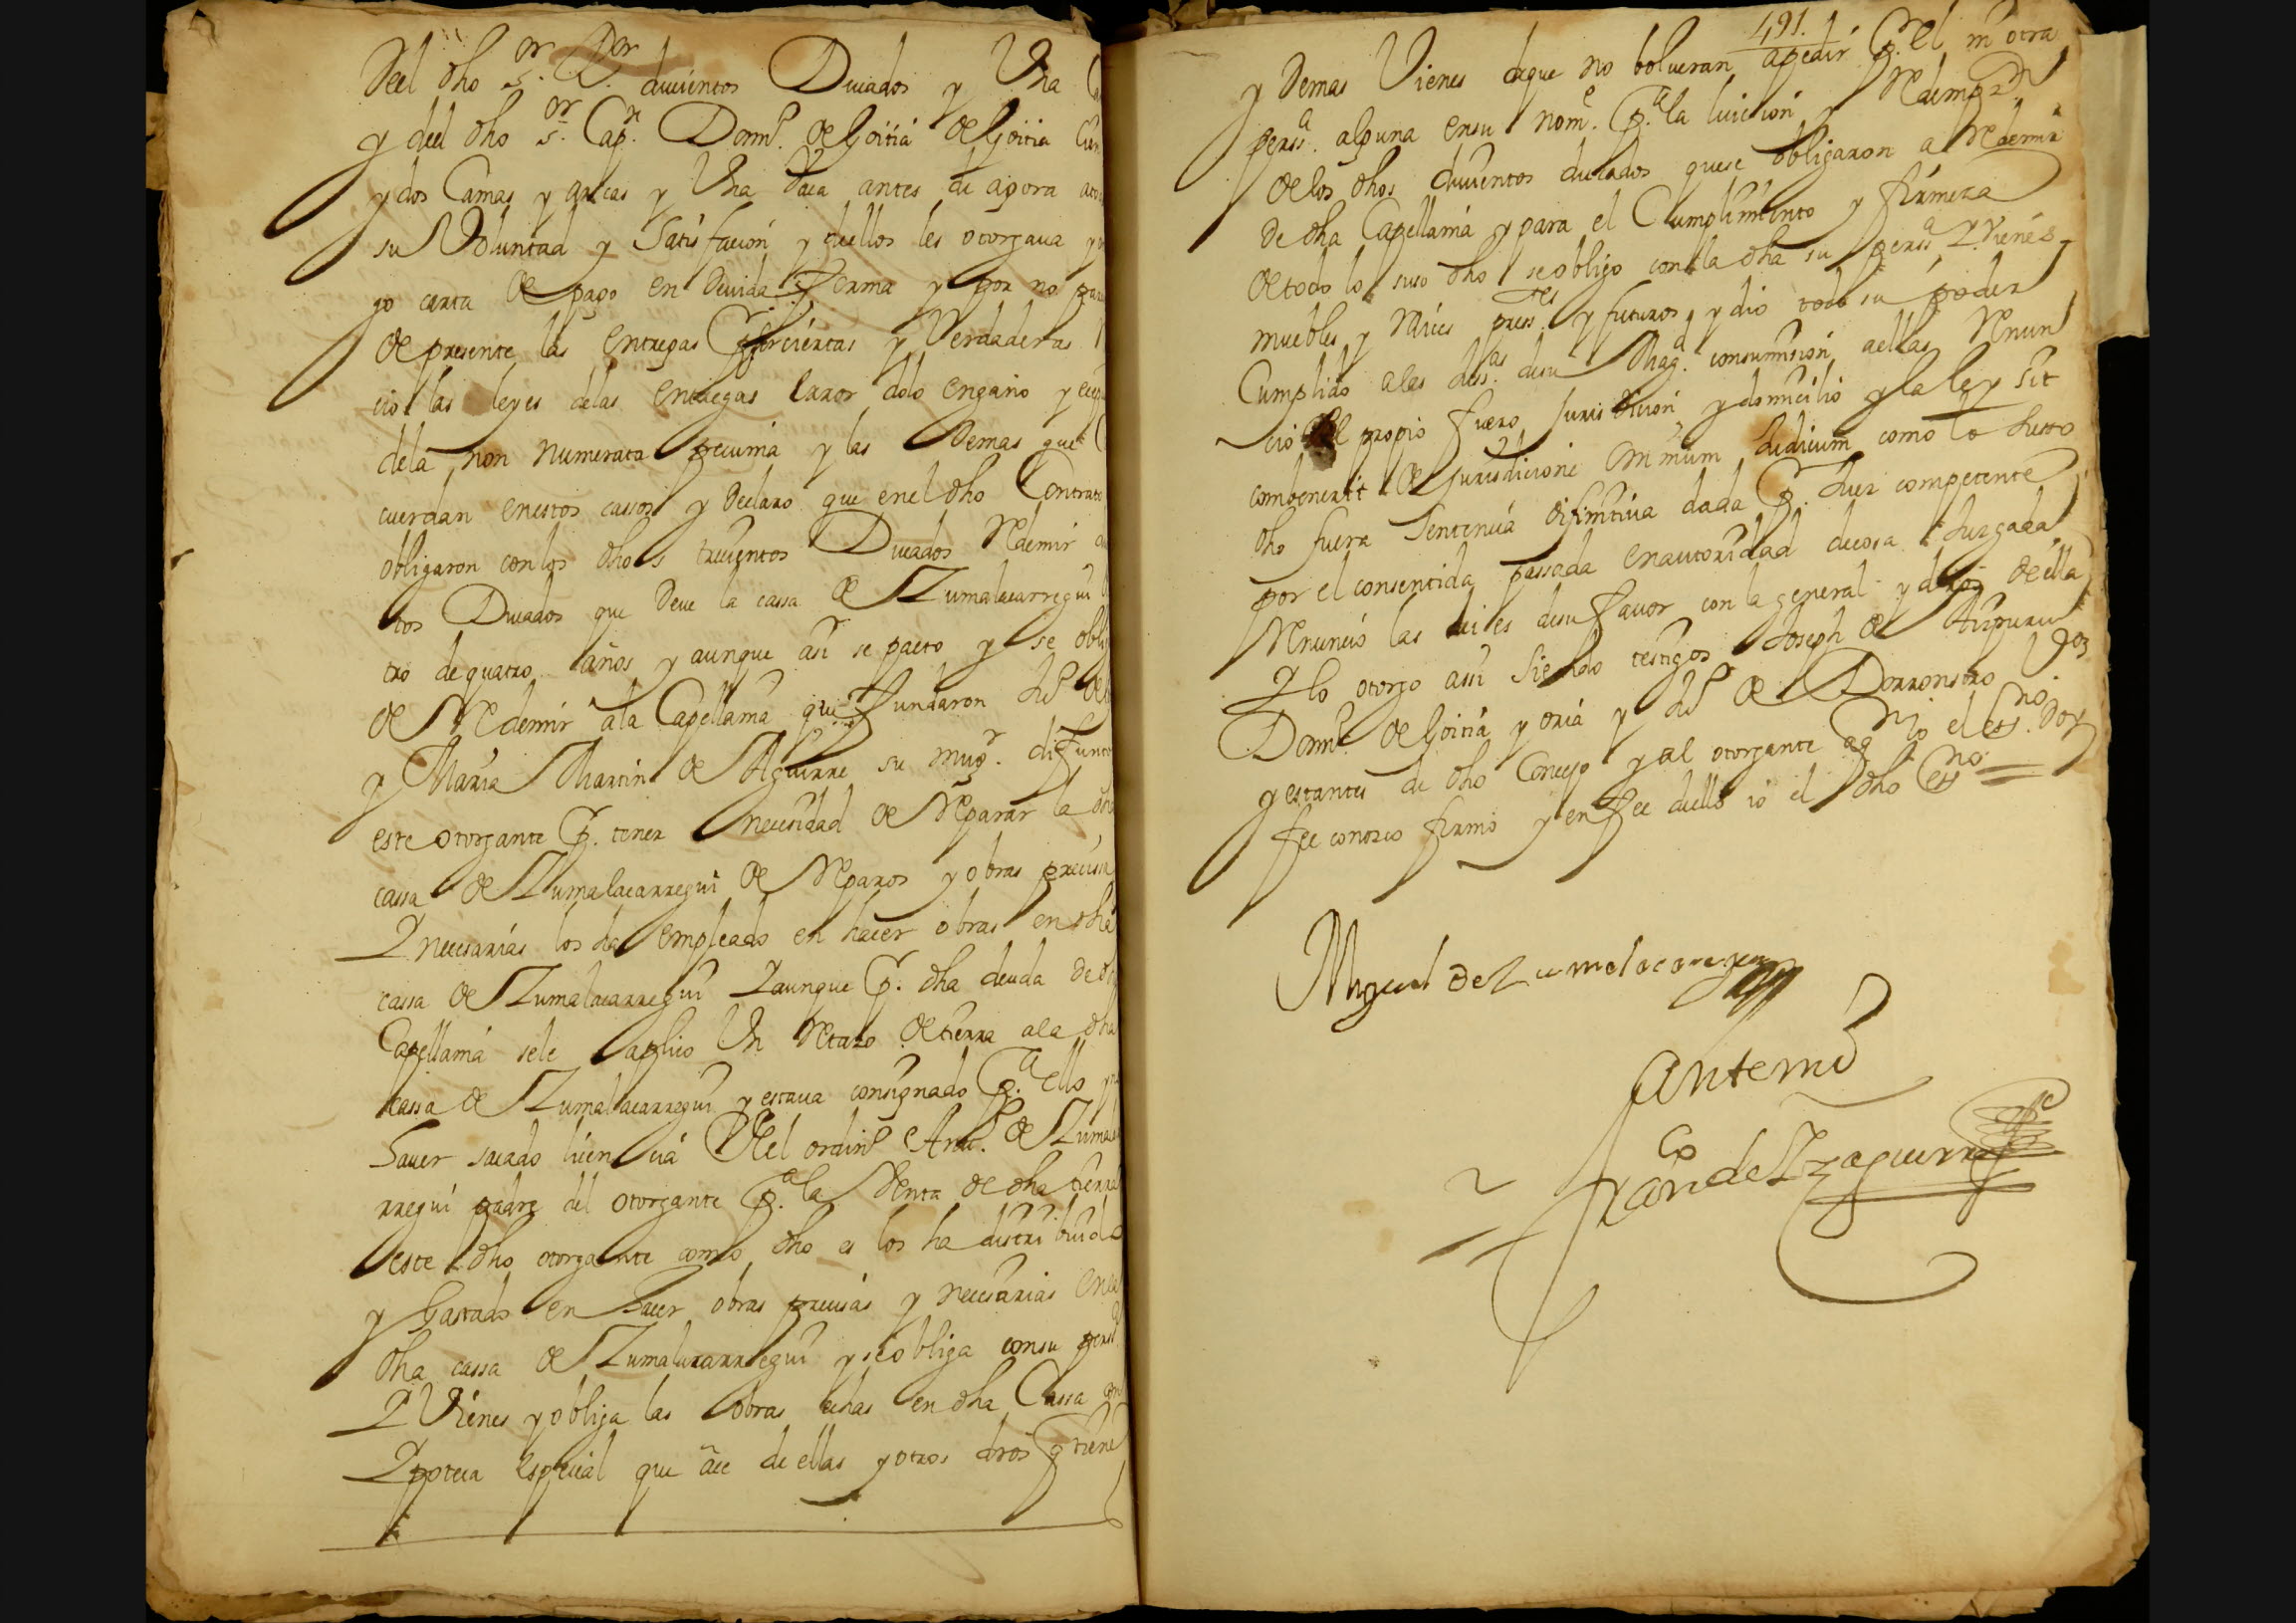 Del dho s.or D.or ducientos Ducados y Vna
y del dho s.or Cap.n Dom.o de Goitia de Goitia
y dos Camas y arcas y Vna Vaca antes de agora a
su Voluntad y Satisfacion y dellos les otorgaua y
go carta de pago en deuida forma y por no pare
de presente las entregas por ciertas y Verdaderas
cio las leyes delas entregas error dolo engaño y
dela non numerata pecunia y las demas que
cuerdan enestos cassos y declaro que enel dho Contrato
obligaron conlos dhos trecientos Ducados Redemir
tos Ducados que deue la cassa de Zumalacarregui
tro de quatro años y aunque asi se pacto y se obli
de Redemir ala Capellania que fundaron
y Maria Martin de Aguirre su mug.r difunt
este otorgante p. tener necesidad de Reparar la dha
cassa de Zumalacarregui de Reparos y obras precisa
Y necesarias los ha empleado en hacer obras en dha
cassa de Zumalacarregui Y aunque p. dha deuda de dh
Capellania sele aplico Vn Retazo de tierra ala dha
cassa de Zumalacarregui y estaua consignado p.a ello y
hauer sacado licencia del ordin.o de Zumala
rregui padre del otorgante p.a la Venta de dha tierra
este dho otorgante como dho es los ha distribuido
y Gastado en hacer obras precisas y necesarias en
dha cassa de Zumalacarregui y se obliga consu pers.a
Y Vienes y obliga las obras echas en dha Cassa
Ypoteca especial que ãce de ellas y otros dros q tiene
491.
y demas Vienes deque no bolueran apedir p. el ni otra
perss.a alguna ensu nom.e p.a la luicion y Redemp.on
delos dhos ducientos ducados quese obligaron a Redemir
de dha Capellania y para el Cumplimiento y firmeza
de todo lo suso dho se obligo con la dha su perss.a Y Vienes
muebles y Raices press.tes y futuros y dio todo su poder
Cumplido alas Juss.as desu Mag.d consumision aellas Renun
cio el propio fuero Jurisdicion y domicilio y la ley Sit
combenerit de Jurisdicione omnium Judicum como lo
dho fuera Sentencia difinitiua dada p. Juez competente
por el consentida passada en autoridad decosa Juzgada
Renuncio las leies desu fauor con la general y dros de ella
Y lo otorgo assi siendo testigos Joseph de
Dom.o de Goitia y oria y de Dorronsoro Vez.
y estantes de dho Concejo y al otorgante aq.n io el ess.no Doy
fee conozco firmo y en fee dello io el dho Ess.no
Miguel de Zumalacarregui
Ante mi
Fran.co de Yzaguirre